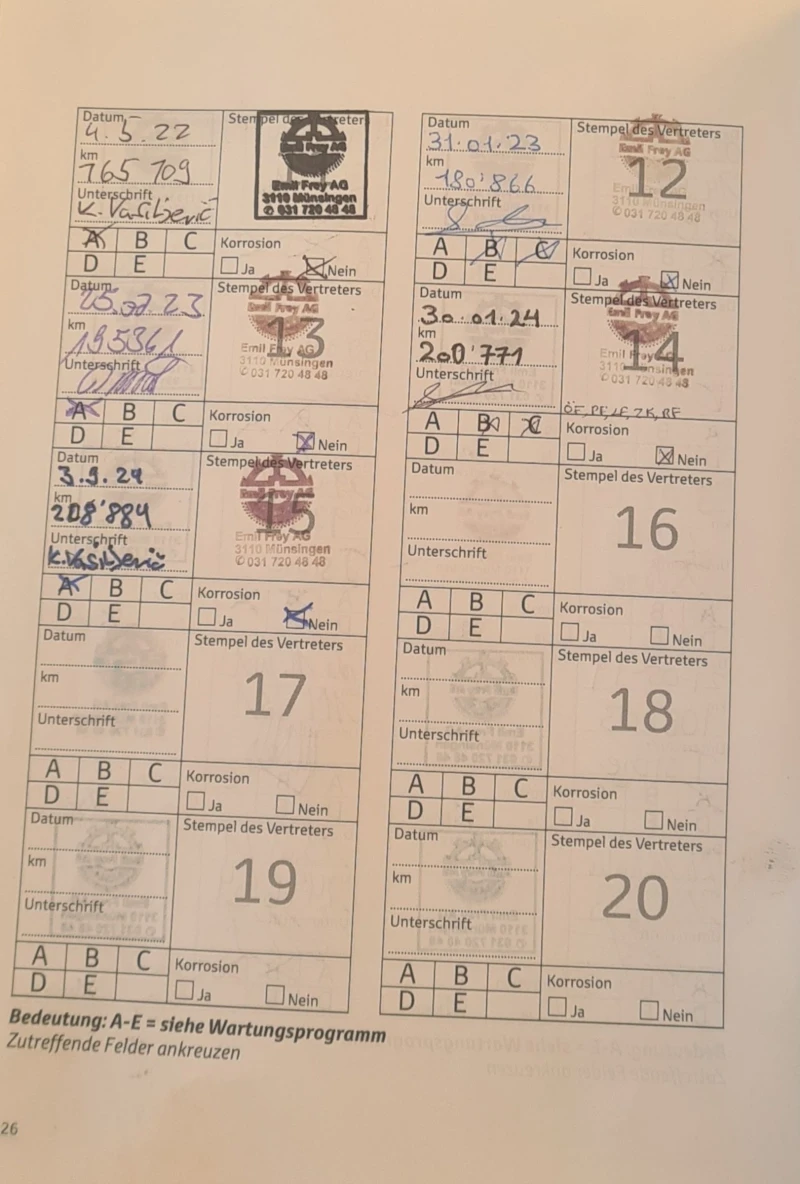 Datum
4.5.22
km
165 109
Unterschrift
K. Vasiljević
Stempel des Vertreters
Emil Frey AG
Emil Frey AG
3110 Münsingen
✆ 031 720 48 48
A B C
D E
Korrosion
Ja Nein
Datum
31.01.23
km
180'866
Unterschrift
Stempel des Vertreters
12
Emil Frey AG
3110 Münsingen
✆ 031 720 48 48
A B C
D E
Korrosion
Ja Nein
Datum
km
195361
Unterschrift
Stempel des Vertreters
13
Emil Frey AG
Emil Frey AG
3110 Münsingen
✆ 031 720 48 48
A B C
D E
Korrosion
Ja Nein
Datum
30.01.24
km
200'771
Unterschrift
Stempel des Vertreters
14
Emil Frey AG
Emil Frey AG
3110 Münsingen
✆ 031 720 48 48
A B C
D E
Korrosion
Ja Nein
Datum
3.9.24
km
208'884
Unterschrift
K. Vasiljević
Stempel des Vertreters
15
Emil Frey AG
Emil Frey AG
3110 Münsingen
✆ 031 720 48 48
A B C
D E
Korrosion
Ja Nein
Datum
km
Unterschrift
Stempel des Vertreters
16
A B C
D E
Korrosion
Ja Nein
Datum
km
Unterschrift
Stempel des Vertreters
17
A B C
D E
Korrosion
Ja Nein
Datum
km
Unterschrift
Stempel des Vertreters
18
A B C
D E
Korrosion
Ja Nein
Datum
km
Unterschrift
Stempel des Vertreters
19
A B C
D E
Korrosion
Ja Nein
Datum
km
Unterschrift
Stempel des Vertreters
20
A B C
D E
Korrosion
Ja Nein
Bedeutung: A-E = siehe Wartungsprogramm
Zutreffende Felder ankreuzen
26